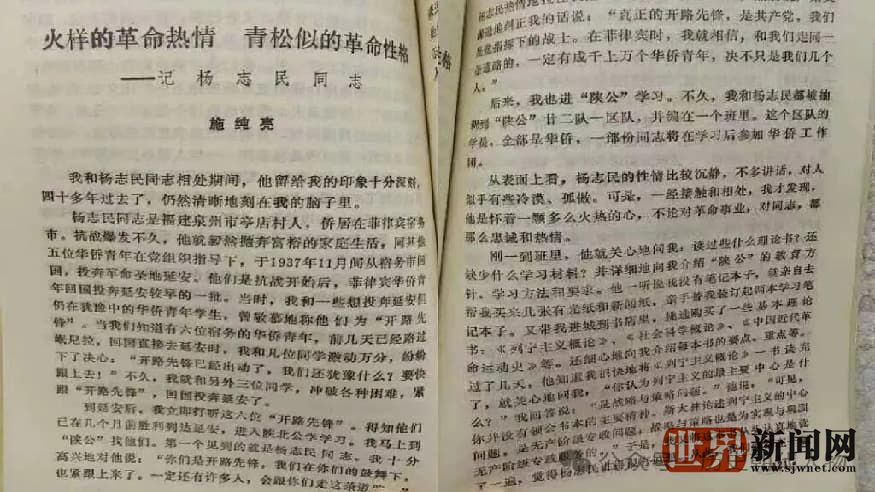 火样的革命热情 青松似的革命性格
——记杨志民同志
施纯亮
我和杨志民同志相处期间，他留给我的印象十分深刻，
四十多年过去了，仍然清晰地刻在我的脑子里。
杨志民同志是福建泉州市亭店村人，侨居在菲律宾宿务
市。抗战爆发不久，他就毅然抛弃富裕的家庭生活，同其他
五位华侨青年在党组织指导下，于1937年11月间从宿务市回
国，投奔革命圣地延安。他们是抗战开始后，菲律宾华侨青
年回国投奔延安较早的一批。当时，我和一些想投奔延安但
仍在我逸中的华侨青年学生，曾敬慕地称他们为“开路先
锋”。当我们知道有六位宿务的华侨青年，前几天已经路过
岷尼拉，回国直接去延安时，我和几位同学激动万分，纷纷
下了决心：“开路先锋已经出动了，我们还犹豫什么？要快
跟上去！”不久，我就和另外三位同学，冲破各种困难，紧
跟“开路先锋”，回国投奔延安了。
到延安后，我立即打听这六位“开路先锋”。得知他们
已在几个月前胜利到达延安，进入陕北公学学习。我马上到
“陕公”找他们。第一个见到的就是杨志民同志，我十分
高兴地对他说：“你们是开路先锋，我们在你们的鼓舞下，
也紧跟上来了。一定还有许多人，会跟你们走这条道
杨志民热情地
地到正我的话说：“真正的开路先锋，是共产党，我们
指挥下的战士。在菲律宾时，我就相信，和我们走同一
道路的，一定有成千上万个华侨青年，决不只是我们几个
人。”
后来，我也进“陕公”学习。不久，我和杨志民都被抽
到“陕公”廿二队一区队，并编在一个班里。这个区队的
学员，全部是华侨，一部份同志将在学习后参加华侨工作
团。
从表面上看，杨志民的性情比较沉静，不多讲话，对人
似乎有些冷漠、孤傲。可是，一经接触和相处，我才发现，
他是怀着一颗多么火热的心，不论对革命事业，对同志，都
那么忠诚和热情。
刚一到班里，他就关心地问我：读过些什么理论书？还
缺少什么学习材料？并详细地向我介绍“陕公”的教育方
针、学习方法和要求。他一听说我没有笔记本子，就亲自去
帮我买来几张有光纸和新闻纸，亲手替我装订起两本学习笔
记本子。又带我进城到书店里，挑选购买了一些基本理论
书：《列宁主义概论》、《社会科学概论》、《中国近代革
命运动史》等。还细心地向我介绍每本书的要点、重点等。
过了几天，他知道我很快地将《列宁主义概论》一书读完
了，就关心地问我，“你认为列宁主义的最主要中心是什
么？”我回答说：“是战略与策略问题。”他说：“可见，
你并没有领会书本的主要精神。斯大林论述列宁主义的中心
问题，是无产阶级专政问题，
无产阶级专政
了一遍，觉得杨志民
世界新闻网
www.sjwnet.com